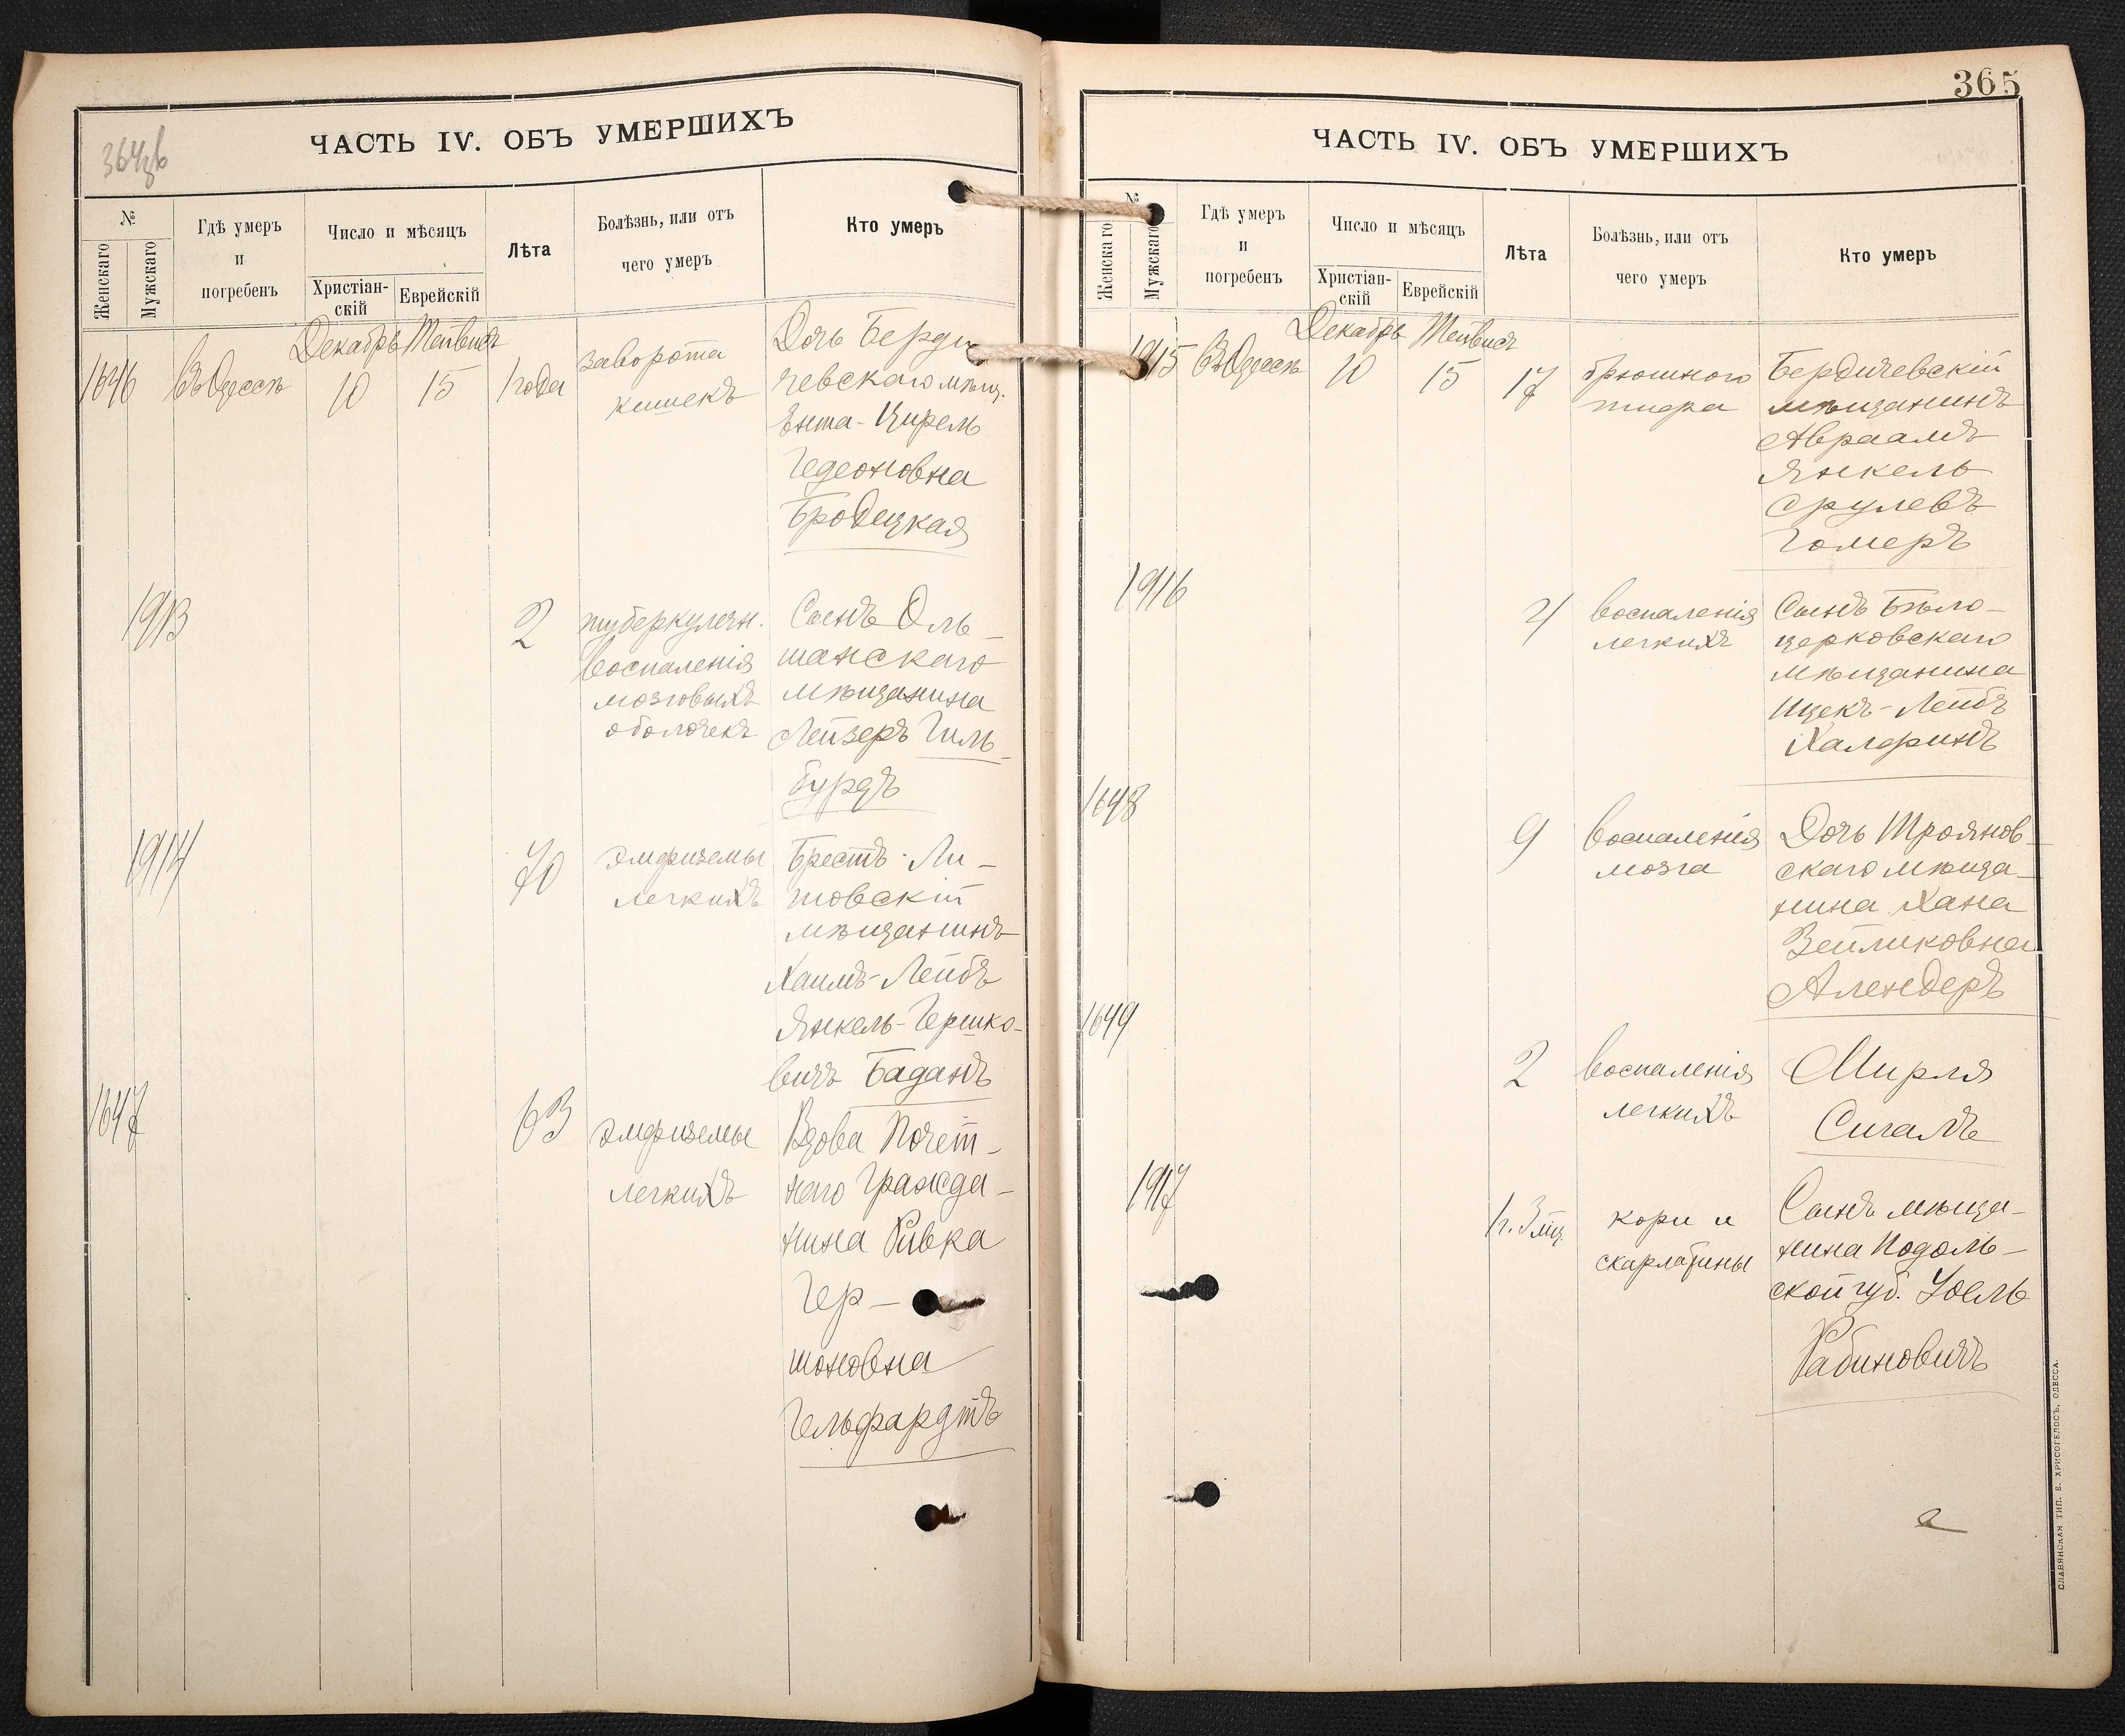 364об
ЧАСТЬ IV. ОБЪ УМЕРШИХЪ
№
Женскаго
Мужскаго
Гдѣ умеръ
и
погребенъ
Число и мѣсяцъ
Христіан-
скій
Еврейскій
Лѣта
Болѣзнь, или отъ
чего умеръ
Кто умеръ
Декабрь Тейвисъ
1646 Въ Одессѣ 10 15 1 года
заворота
кишекъ
Дочь Берди
чевскаго мѣщ.
Ента-Цирель
Гедеоновна
Бродецкая
1913
2
туберкулезн.
воспаленія
мозговыхъ
оболочекъ
Сынъ Оль-
шанскаго
мѣщанина
Лейзеръ Гиль-
бурдъ
1914
70
эмфиземы
легкихъ
Брестъ-Ли-
товскій
мѣщанинъ
Хаимъ-Лейбъ
Янкель-Гершко-
вичъ Баданъ
1647
63
эмфиземы
легкихъ
Вдова Почет-
наго Гражда-
нина Ривка
Гер-
шоновна
Гельфардтъ
365
ЧАСТЬ IV. ОБЪ УМЕРШИХЪ
№
Женскаго
Мужскаго
Гдѣ умеръ
и
погребенъ
Число и мѣсяцъ
Христіан-
скій
Еврейскій
Лѣта
Болѣзнь, или отъ
чего умеръ
Кто умеръ
Декабрь Тейвисъ
1915 Въ Одессѣ 10 15 17
брюшного
тифа
Бердичевскій
мѣщанинъ
Авраамъ
Янкель
Срулевъ
Гомеръ
1916
4
воспаленія
легкихъ
Сынъ Бѣло-
церковскаго
мѣщанина
Ицекъ-Лейбъ
Халфинъ
1648
9
воспаленія
мозга
Дочь Троянов-
скаго мѣща-
нина Хана
Зейликовна
Алендеръ
1649
2
воспаленія
легкихъ
Мирля
Сигалъ
1917
1 г. 3 мц.
кори и
скарлатины
Сынъ мѣща-
нина Подоль-
ской губ. Іоель
Рабиновичъ
СЛАВЯНСКАЯ ТИП. Е. ХРИСОГЕЛОСЪ, ОДЕССА.